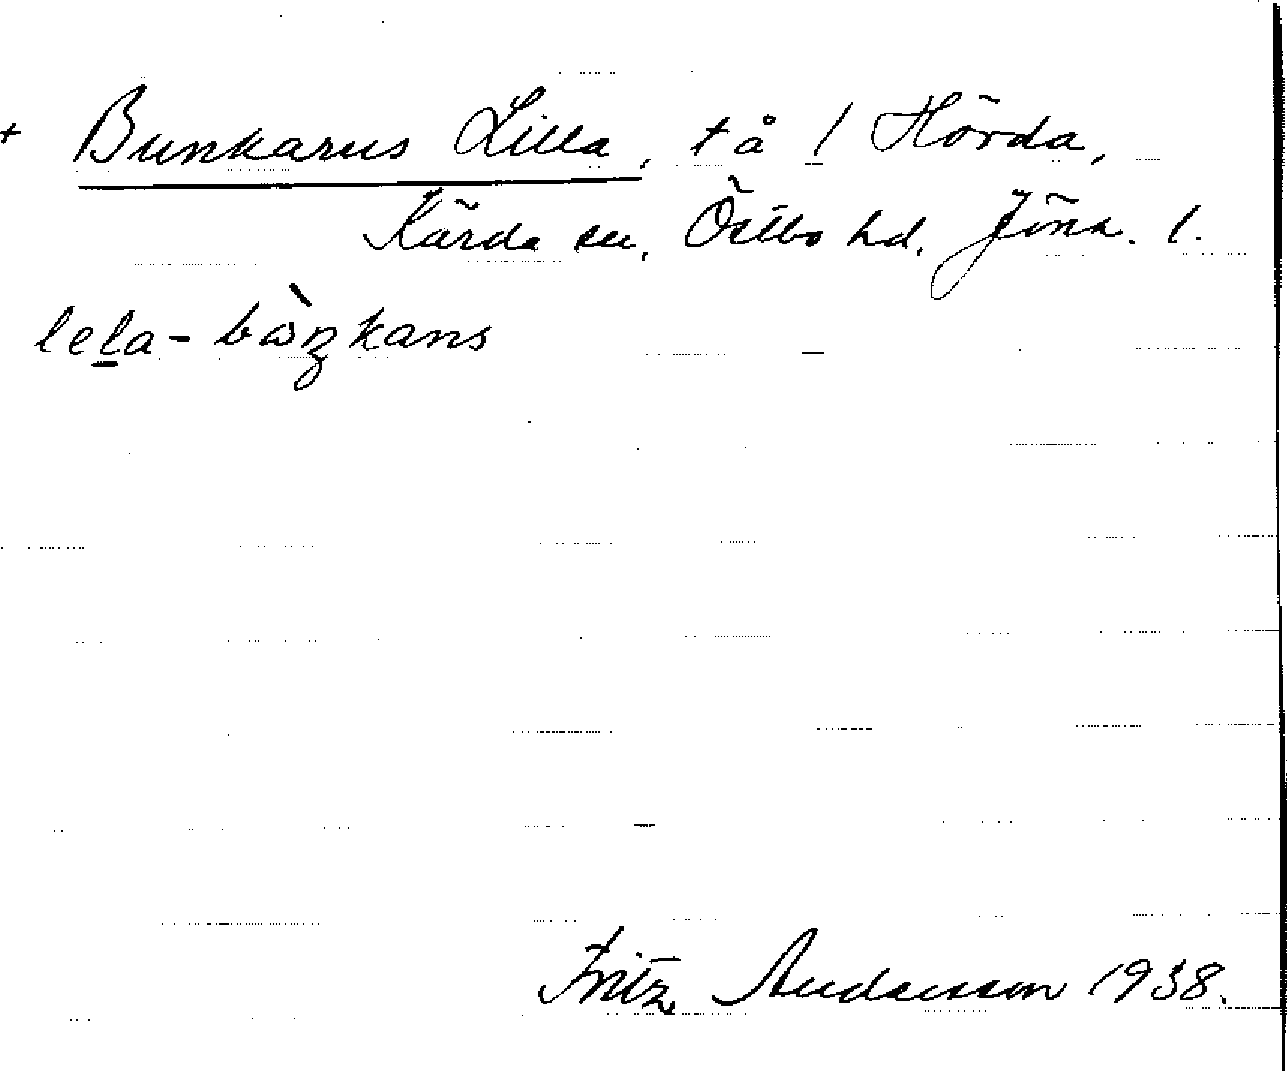 + Bunkarns Lilla, tå / Hörda,
Kärda sn, Östbo hd. Jönk. l.
lela - bὼŋkans
Fritz Andersson 1938.